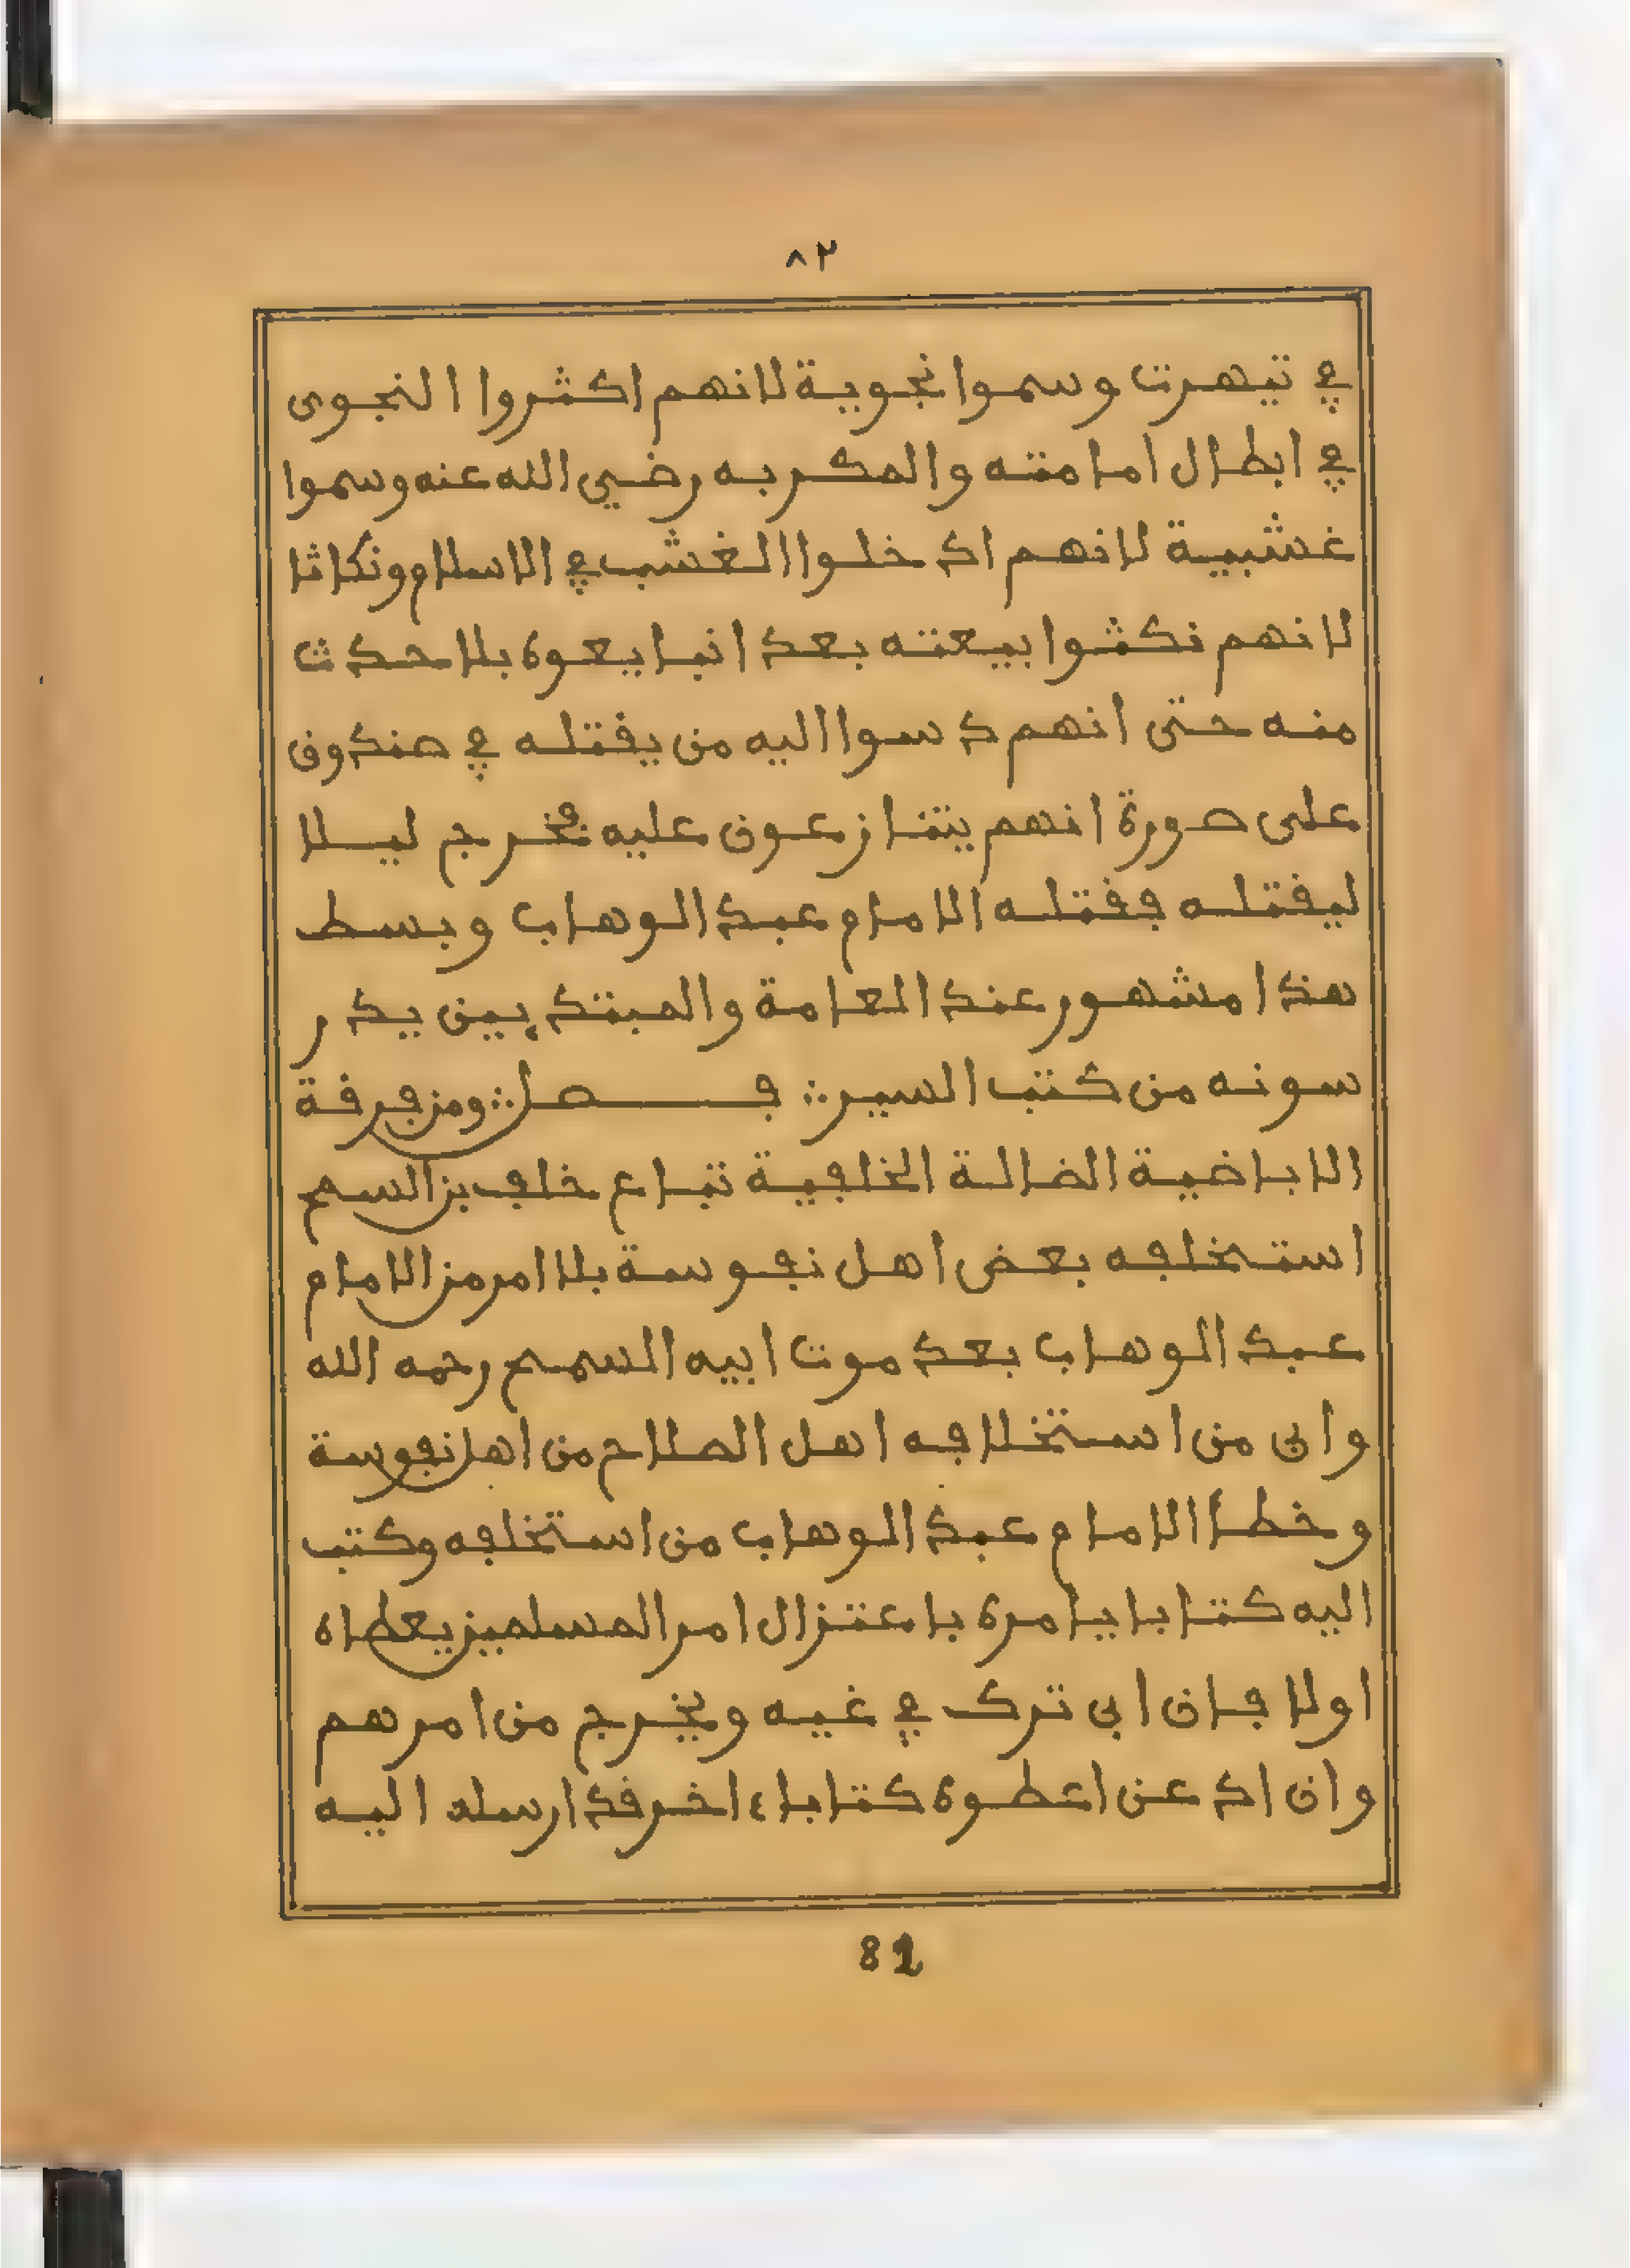 ٨٢
في تيهرت وسموا نجوية لانهم اكثروا النجوى
في ابطال امامته والمكر به رضي الله عنه وسموا
غشبية لانهم ادخلوا الغشب في الاسلام ونكاثا
لانهم نكثوا بيعته بعد انبايعوه بلا حدث
منه حتى انهم دسوا اليه من يقتله في صندوق
على صورة انهم يتنازعون عليه فخرج ليلا
ليقتله فقتله الامام عبد الوهاب وبسط
هذا مشهور عند العامة والمبتدءين يدر
سونه من كتب السير ∴ فصل ∴ ومن فرقة
الاباضية الضالة الخلفية تباع خلف بن السمح
استخلفه بعض اهل نفوسة بلا امر من الامام
عبد الوهاب بعد موت ابيه السمح رحمه الله
وابى من استخلافه اهل الصلاح من اهل نفوسة
وخطا الامام عبد الوهاب من استخلفه وكتب
اليه كتابا يامره باعتزال امر المسلمين يعطاه
اولا فان ابى ترك في غيه ويخرج من امرهم
وان ادعن اعطوه كتابا ءاخر قد ارسله اليه
82